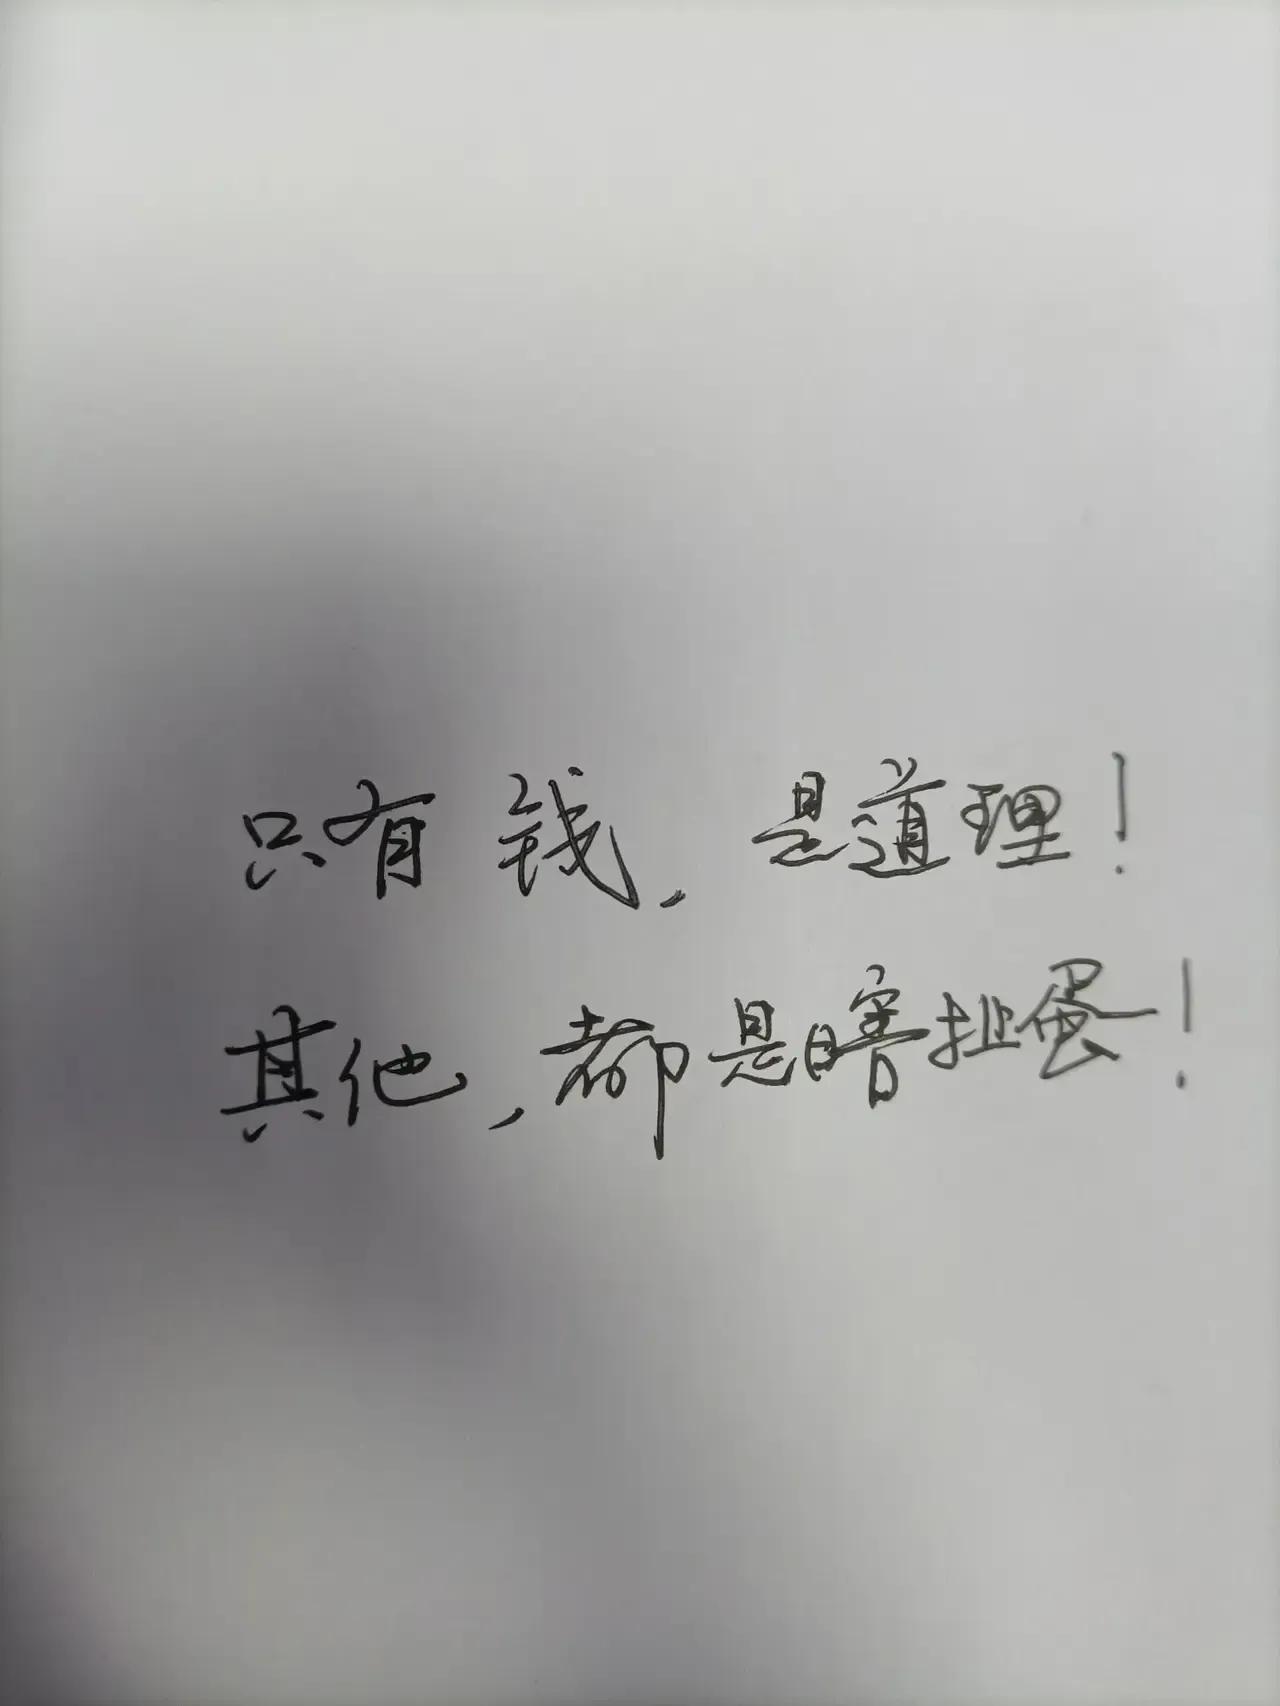 只有钱，是道理！
其他，都是瞎扯蛋！